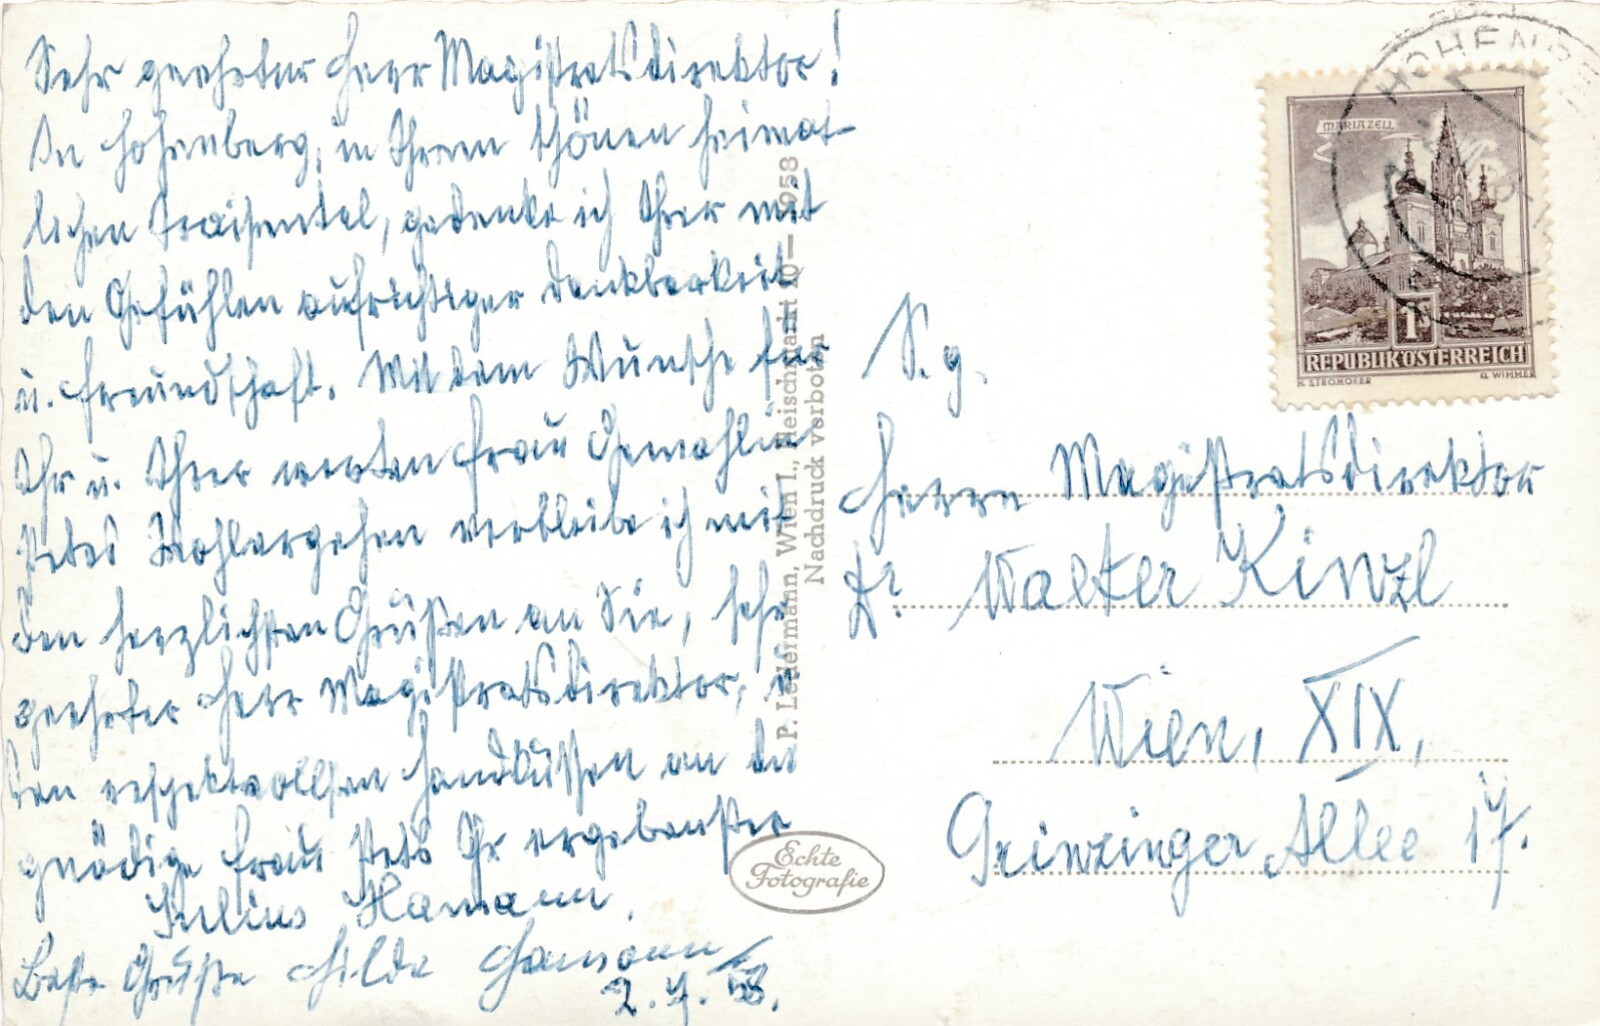 Sehr geehrter Herr Magistratsdirektor!
In Hohenberg, in Ihrem schönen heimat-
lichen Traisental, gedenke ich Ihrer mit
den Gefühlen aufrichtiger Dankbarkeit
u. Freundschaft. Mit dem Wunsche für
Ihr u. Ihrer werten Frau Gemahlin
stetes Wohlergehen verbleibe ich mit
den herzlichsten Grüßen an Sie, sehr
geehrter Herr Magistratsdirektor, u.
den respektvollsten Handküssen an die
gnädige Frau stets Ihr ergebenster
Julius Hamann.
Beste Grüße Hilde Hamann
2.7.58.
P. Ledermann, Wien I., Fleischmarkt 20 — 1958
Nachdruck verboten
Echte
Fotografie
MARIAZELL
1S
REPUBLIK ÖSTERREICH
H. STROHOFER G. WIMMER
S. g.
Herrn Magistratsdirektor
Dr. Walter Kinzl
Wien, XIX,
Grinzinger Allee 17.